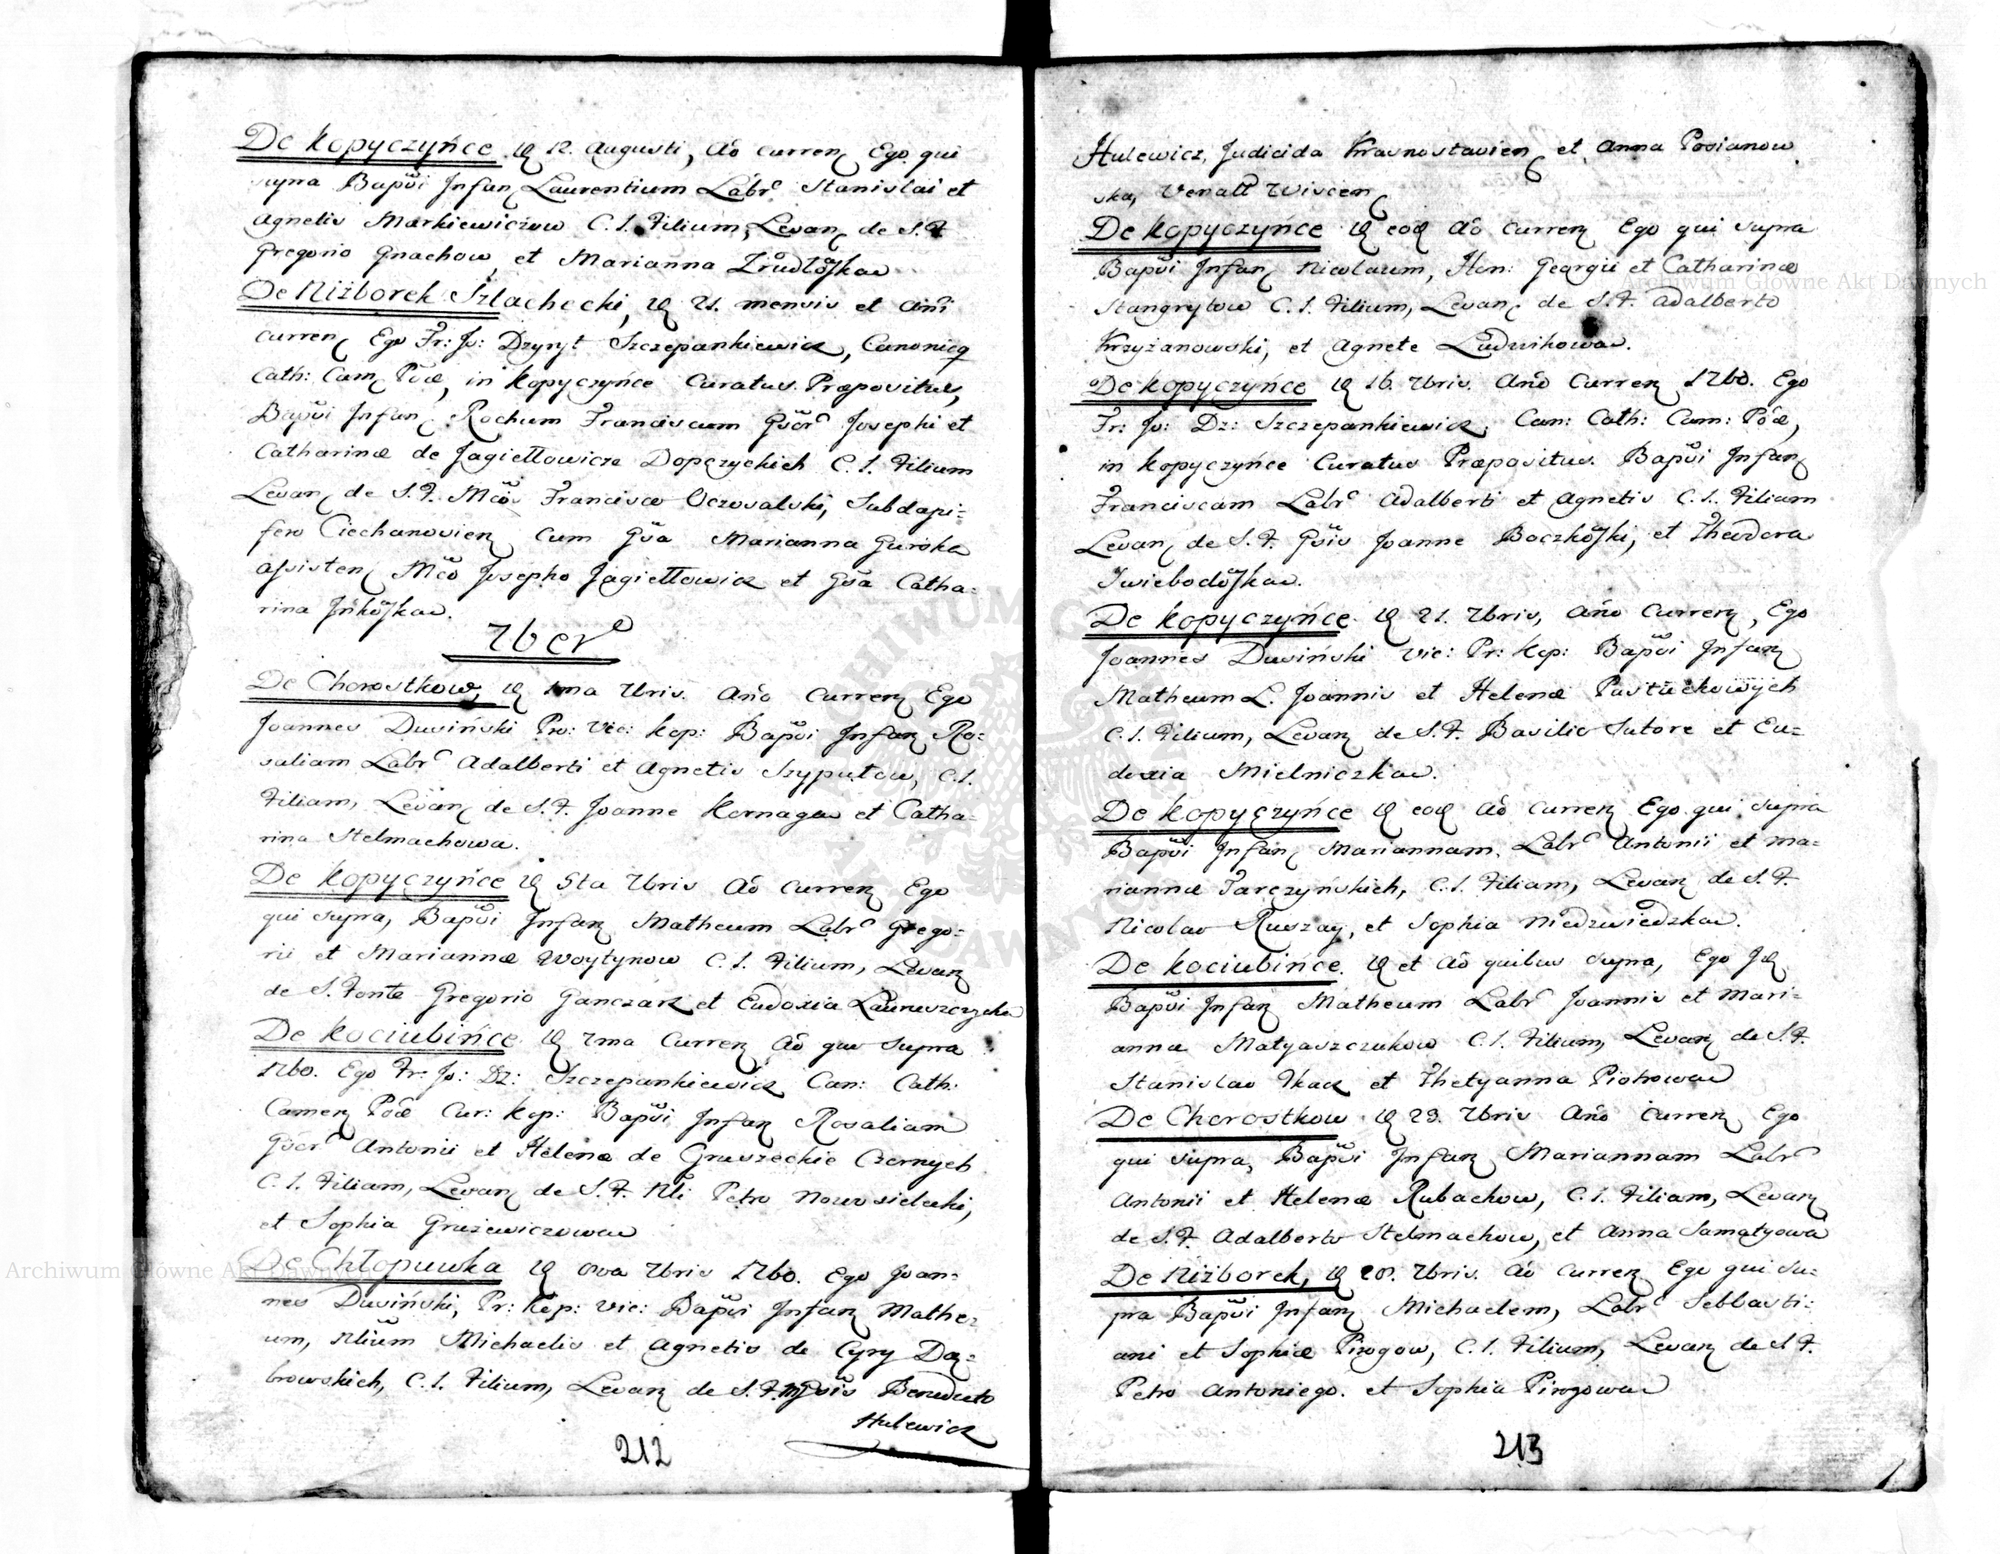 De Kopyczyńce D 12. Augusti, Ao curren Ego qui
supra Bapvi Infan Laurentium Labr Stanislai et
Agnetis Markiewiczow C. l. Filium, Levan de S. F.
Gregorio Gnachow et Marianna
De Niżborek Szlachecki, D 21. mensis et Anni
curren Ego Fr: Jo: Dzyryt Szczepankiewicz, Canonicg
Cath: Cam Poæ, in Kopyczyńce Curatus Præpositus,
Bapvi Infan Rochum Franciscum Gsor Josephi et
Catharinæ de Jagiełłowicze Dopczyckich C. l. Filium
Levan de S. F. Mco Francisco Oczosalski, Subdapi=
fero Ciechanovien cum Gsa Marianna Gurska
assisten Mco Josepho Jagiełłowicz et Gsa Catha=
rina
7ber
De Chorostkow, D 1ma 7bris. Ano curren Ego
Joannes Dusiński Pro: Vic: Kop: Bapvi Infan Ro=
saliam Labr Adalberti et Agnetis Szypułow, C. l.
Filiam, Levan de S. F. Joanne Kornaga et Catha=
rina Stelmachowa.
De Kopyczyńce D 5ta 7bris Ao curren Ego
qui supra, Bapvi Infan Matheum Labr Grego=
rii et Mariannæ Woytynow C. l. Filium, Levan
de S. Fonte Gregorio Ganczarz et Eudoxia
De Kociubińce D 7ma Curren Ao quo supra
1760. Ego Fr: Jo: Dz: Szczepankiewicz Can: Cath:
Camen Poæ Cur: Kop: Bapvi Infan Rosaliam
Gsor Antonii et Helenæ de Gruszeckie Czernych
C. l. Filiam, Levan de S. F. Nli Petro Nowosielecki,
et Sophia Grużewiczowa
De Chłopuwka D 8va 7bris 1760. Ego Joan=
nes Dusiński, Pr: Kop: Vic: Bapvi Infan Mathe=
um, Nlium Michaelis et Agnetis de Cyry Dą=
browskich, C. l. Filium, Levan de S. F. Benedicto
Hulewicz
212
Hulewicz, Judicida Krasnostavien et Anna Posianow
ska, Venatt Wiscen
De Kopyczyńce D eod Ao curren Ego qui supra
Bapvi Infan Nicolaum, Hon: Georgii et Catharinæ
Stangrytow C. l. Filium, Levan de S. F. Adalberto
Krzyżanowski, et Agnete Ludwikowa.
De Kopyczyńce D 16. 7bris. Ano Curren 1760. Ego
Fr: Jo: Dz: Szczepankiewicz, Can: Cath: Cam: Poæ,
in Kopyczyńce Curatus Præpositus. Bapvi Infan
Franciscam Labr Adalberti et Agnetis C. l. Filiam
Levan de S. F. Gsis Joanne Boczkoski, et Theodora
Swiebodoska.
De Kopyczyńce D 21. 7bris, Ano Curren, Ego
Joannes Dusiński Vic: Pr: Kop: Bapvi Infan
Matheum L. Joannis et Helenæ Pastuchowych
C. l. Filium, Levan de S. F. Basilio Sutore et Eu=
doxia Mielniczka.
De Kopyczyńce D eod Ao curren Ego qui supra
Bapvi Infan Mariannam, Labr Antonii et Ma=
riannæ Tarczyńskich, C. l. Filiam, Levan de S. F.
Nicolao Ruszay, et Sophia Niedzwiedzka.
De Kociubińce. D et Ao quibus supra, Ego Jd
Bapvi Infan Matheum Labr Joannis et Mari=
annæ Matyaszczukow C. l. Filium, Levan de S. F.
Stanislao Tkacz et Thetyanna Piotrowa
De Chorostkow D 23. 7bris Ano curren Ego
qui supra, Bapvi Infan Mariannam Labr
Antonii et Helenæ Rubachow, C. l. Filiam, Levan
de S. F. Adalberto Stelmachow, et Anna Samatyowa
De Niżborek, D 28. 7bris. Ao curren Ego qui su=
pra Bapvi Infan Michaelem, Labr Sebbasti=
ani et Sophiæ Pirogow, C. l. Filium, Levan de S. F.
Petro Antoniego. et Sophia Pirogowa
213
Archiwum Główne Akt Dawnych
Archiwum Główne Akt Dawnych